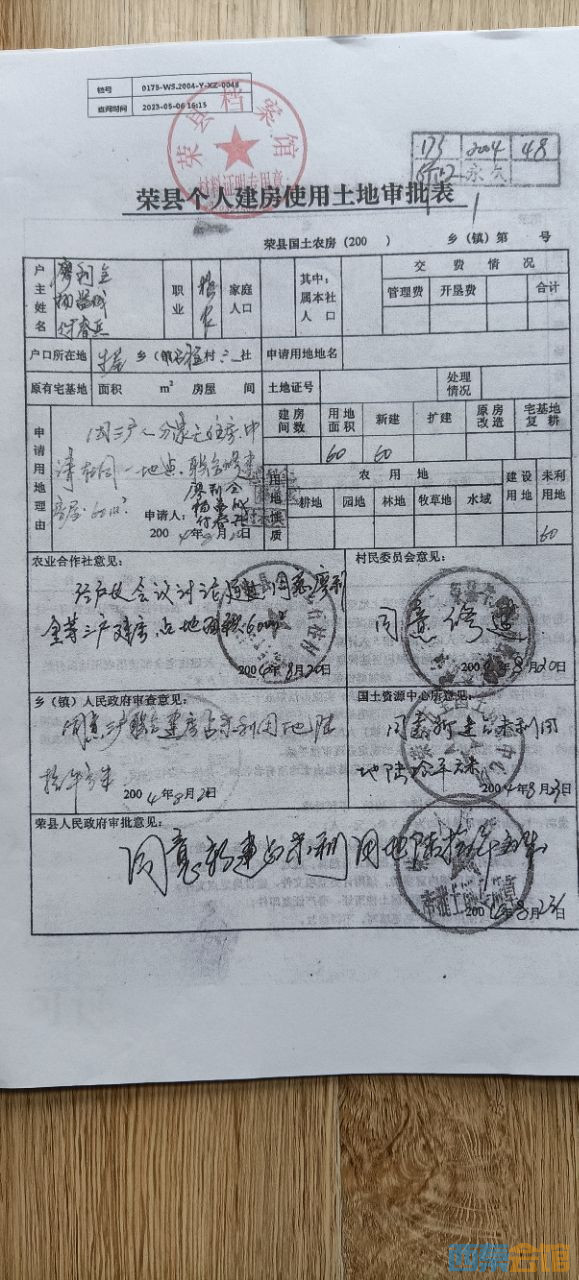 档号 0175-WS.2004-Y-XZ-0048
查阅时间 2023-05-06 16:15
荣县档案馆
材料证明专用章
175 2004 48
永久
荣县个人建房使用土地审批表
荣县国土农房(200 ) 乡(镇)第 号
户主姓名 廖利全
职业 务农 家庭人口 其中:属本社人口 交费情况
管理费 开垦费 合计
户口所在地 乡(镇) 村 社 申请用地地名
原有宅基地 面积 m² 房屋 间 土地证号 处理情况
申请用地理由
建房间数 用地面积 新建 扩建 原房改造 宅基地复耕
60 60
请在同一地点联合修建
房屋60m²
申请人:廖利全
2004年8月20日
用地性质 农用地 建设用地 未利用地
耕地 园地 林地 牧草地 水域
60
农业合作社意见:
经户代会议讨论通过同意廖利
全等三户建房占地面积60m²
2004年8月20日
村民委员会意见:
同意修建
2004年8月20日
乡(镇)人民政府审查意见:
同意三户联合建房占未利用地陆
拾平方米
2004年8月2 日
国土资源中心所意见:
同意新建占未利用
地陆拾平方米
2004年8月23日
荣县人民政府审批意见:
同意新建占未利用地陆拾平方米
2004年8月23日